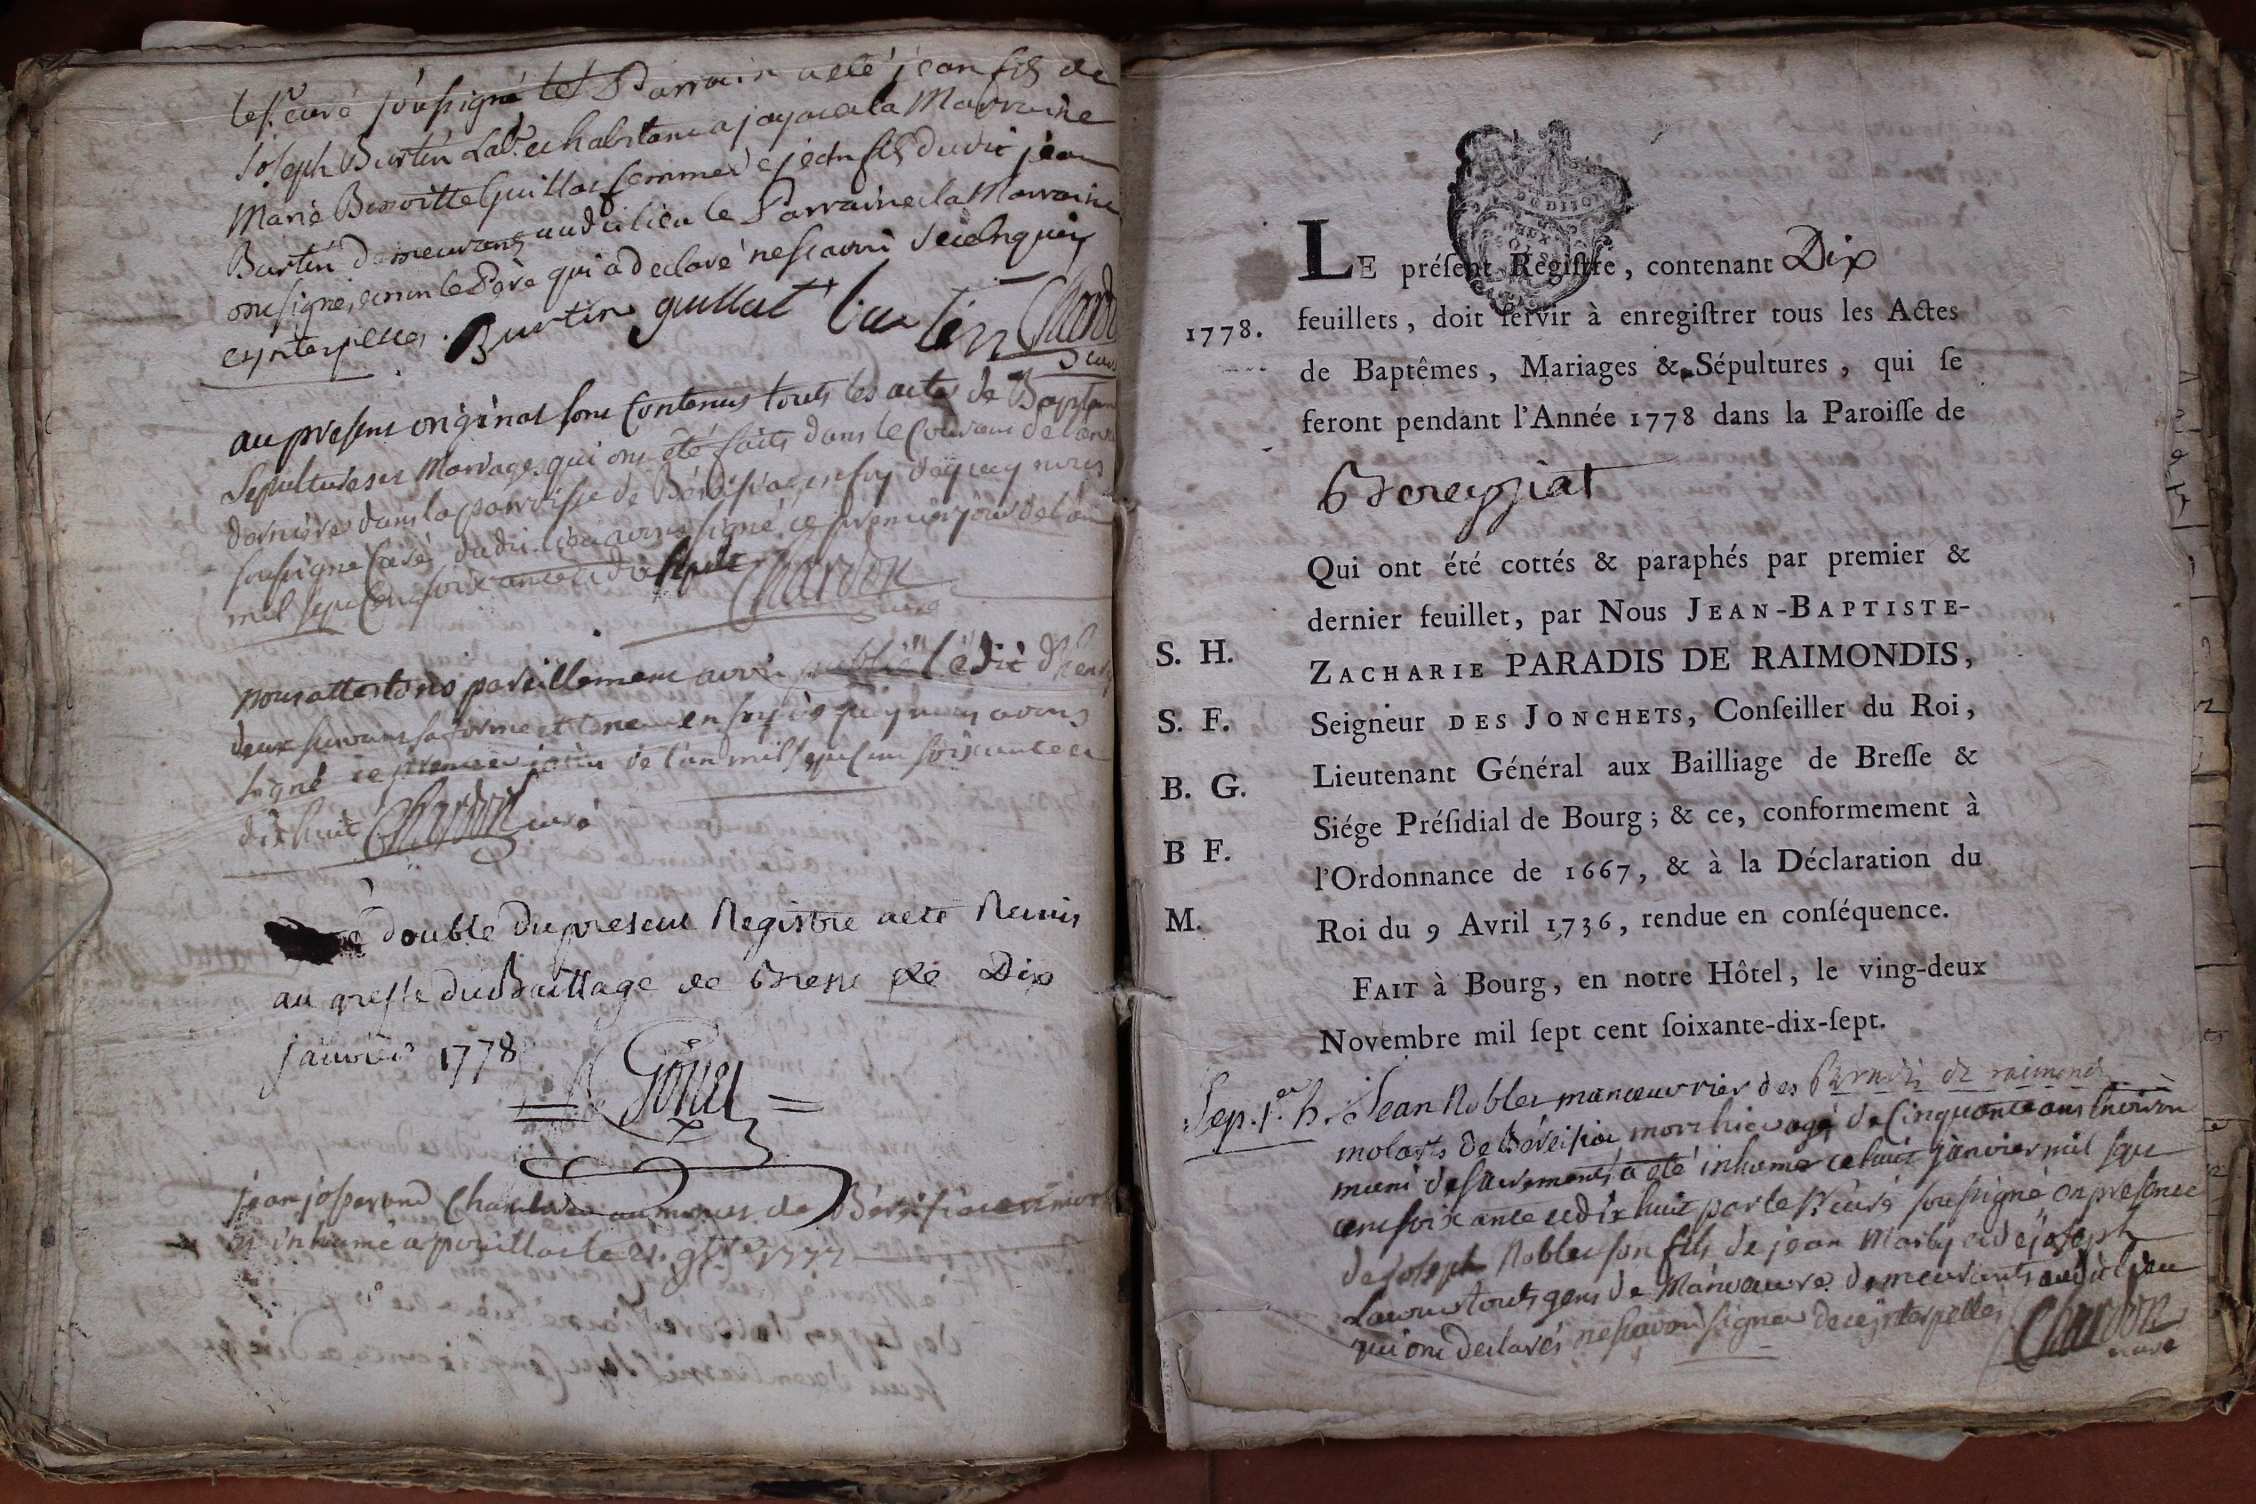 le Sr. curé soussigné le Parrain a eté jean fils de
joseph Burtin Labr. et habitant a jayac et la Marraine
Marie Benoitte Guillot femme de jean fils dudit jean
Burtin demeurans audit lieu le Parrain et la Marraine
ont signé, et non le Père qui a declaré ne scavoir de ce enquis
et interpellés. Burtin guillot burtin Chardon
curé
au present original sont contenus touts les actes de Baptem
Sepultures et Mariages qui ont été faits dans le courant de l'année
derniére dans la parroisse de Béréisiat en foy de quoy nous
soussigné Curé dudit lieu avons signé ce premier jour de l'an
mil sept cent soixante et dix huit Chardon
curé
nous attestons pareillement avoir publié l'edit d'henry
deux suivant sa forme et teneur en foy de quoy nous avons
signé ce premier jour de l'an mil sept cent soixante et
dix huit Chardon curé
double du present Registre a eté Remis
au greffe du Baillage de Bresse Le Dix
janvier 1778
Gonet
jean joseph Chambard de Béréisiat est mort
et inhumé a pouillat le 21. 9bre 1777
LE préſent Regiſtre, contenant Dix
1778.
feuillets, doit ſervir à enregiſtrer tous les Actes
de Baptêmes, Mariages & Sépultures, qui ſe
feront pendant l'Année 1778 dans la Paroiſſe de
Bereyziat
Qui ont été cottés & paraphés par premier &
dernier feuillet, par Nous JEAN-BAPTISTE-
S. H.
ZACHARIE PARADIS DE RAIMONDIS,
S. F.
Seigneur DES JONCHETS, Conſeiller du Roi,
B. G.
Lieutenant Général aux Bailliage de Breſſe &
Siége Préſidial de Bourg; & ce, conformement à
B F.
l'Ordonnance de 1667, & à la Déclaration du
M.
Roi du 9 Avril 1736, rendue en conſéquence.
FAIT à Bourg, en notre Hôtel, le ving-deux
Novembre mil ſept cent ſoixante-dix-ſept.
Paradis de raimondis
Sep. 1er. h. Jean Noblet manœuvrier des
molarts de Béréisiat mort hier agé de Cinquante ans Environ
muni des sacrements a eté inhumé ce huit janvier mil sept
cent soixante et dix huit par le Sr. curé soussigné en presence
de joseph Noblet son fils de jean Marby et de joseph
Lacour touts gens de Manœuvre demeurants audit lieu
qui ont declarés ne scavoir signer de ce interpellés Chardon
curé